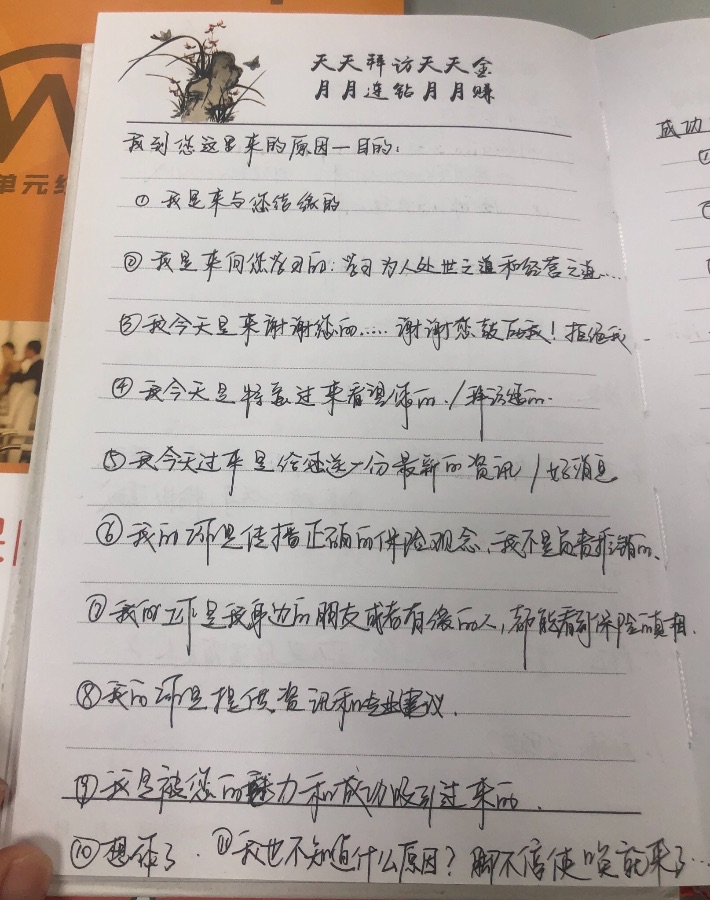 天天拜访天天金
月月连钻月月赚
我到您这里来的原因一目的:
① 我是来与您结缘的
② 我是来向您学习的:学习为人处世之道和经营之道....
③ 我今天是来谢谢您的..... 谢谢您鼓励我!拒绝我
④ 我今天是特意过来看望您的./拜访您的.
⑤ 我今天过来是给您送一份最新的资讯/好消息
⑥ 我的工作是传播正确的保险观念,我不是负责推销的、
⑦ 我的工作是我身边的朋友或者有缘的人,都能看到保险的真相.
⑧ 我的工作是提供资讯和专业建议.
⑨ 我是被您的魅力和成功吸引过来的.
⑩ 想你了. ⑪ 我也不知道什么原因?脚不信使唤就来了...
单元
成功
①